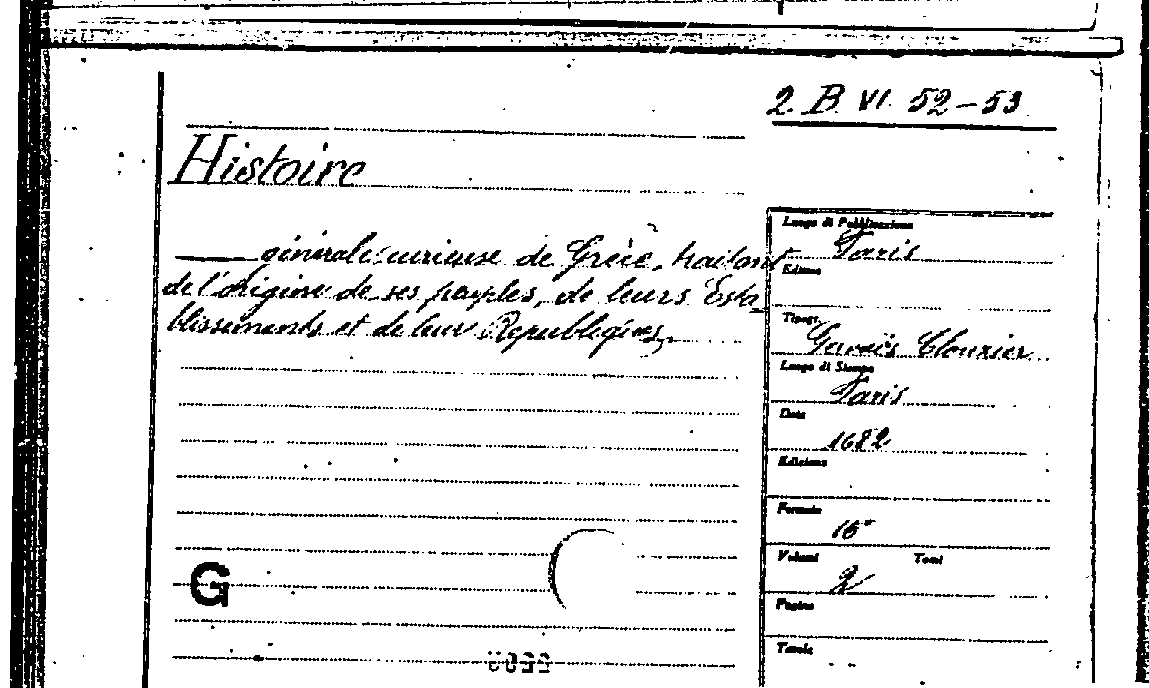 2. B VI 52-53
Histoire
générale curieuse de Grèce, traitant
de l'origine de ses peuples, de leurs Esta-
blissements et de leur Republiques
Luogo di Pubblicazione
Paris
Editore
Tipogr.
Gervais Clouzier
Luogo di Stampa
Paris
Data
1682
Edizione
Formato
16°
Volumi Tomi
2
Pagine
Tavole
G